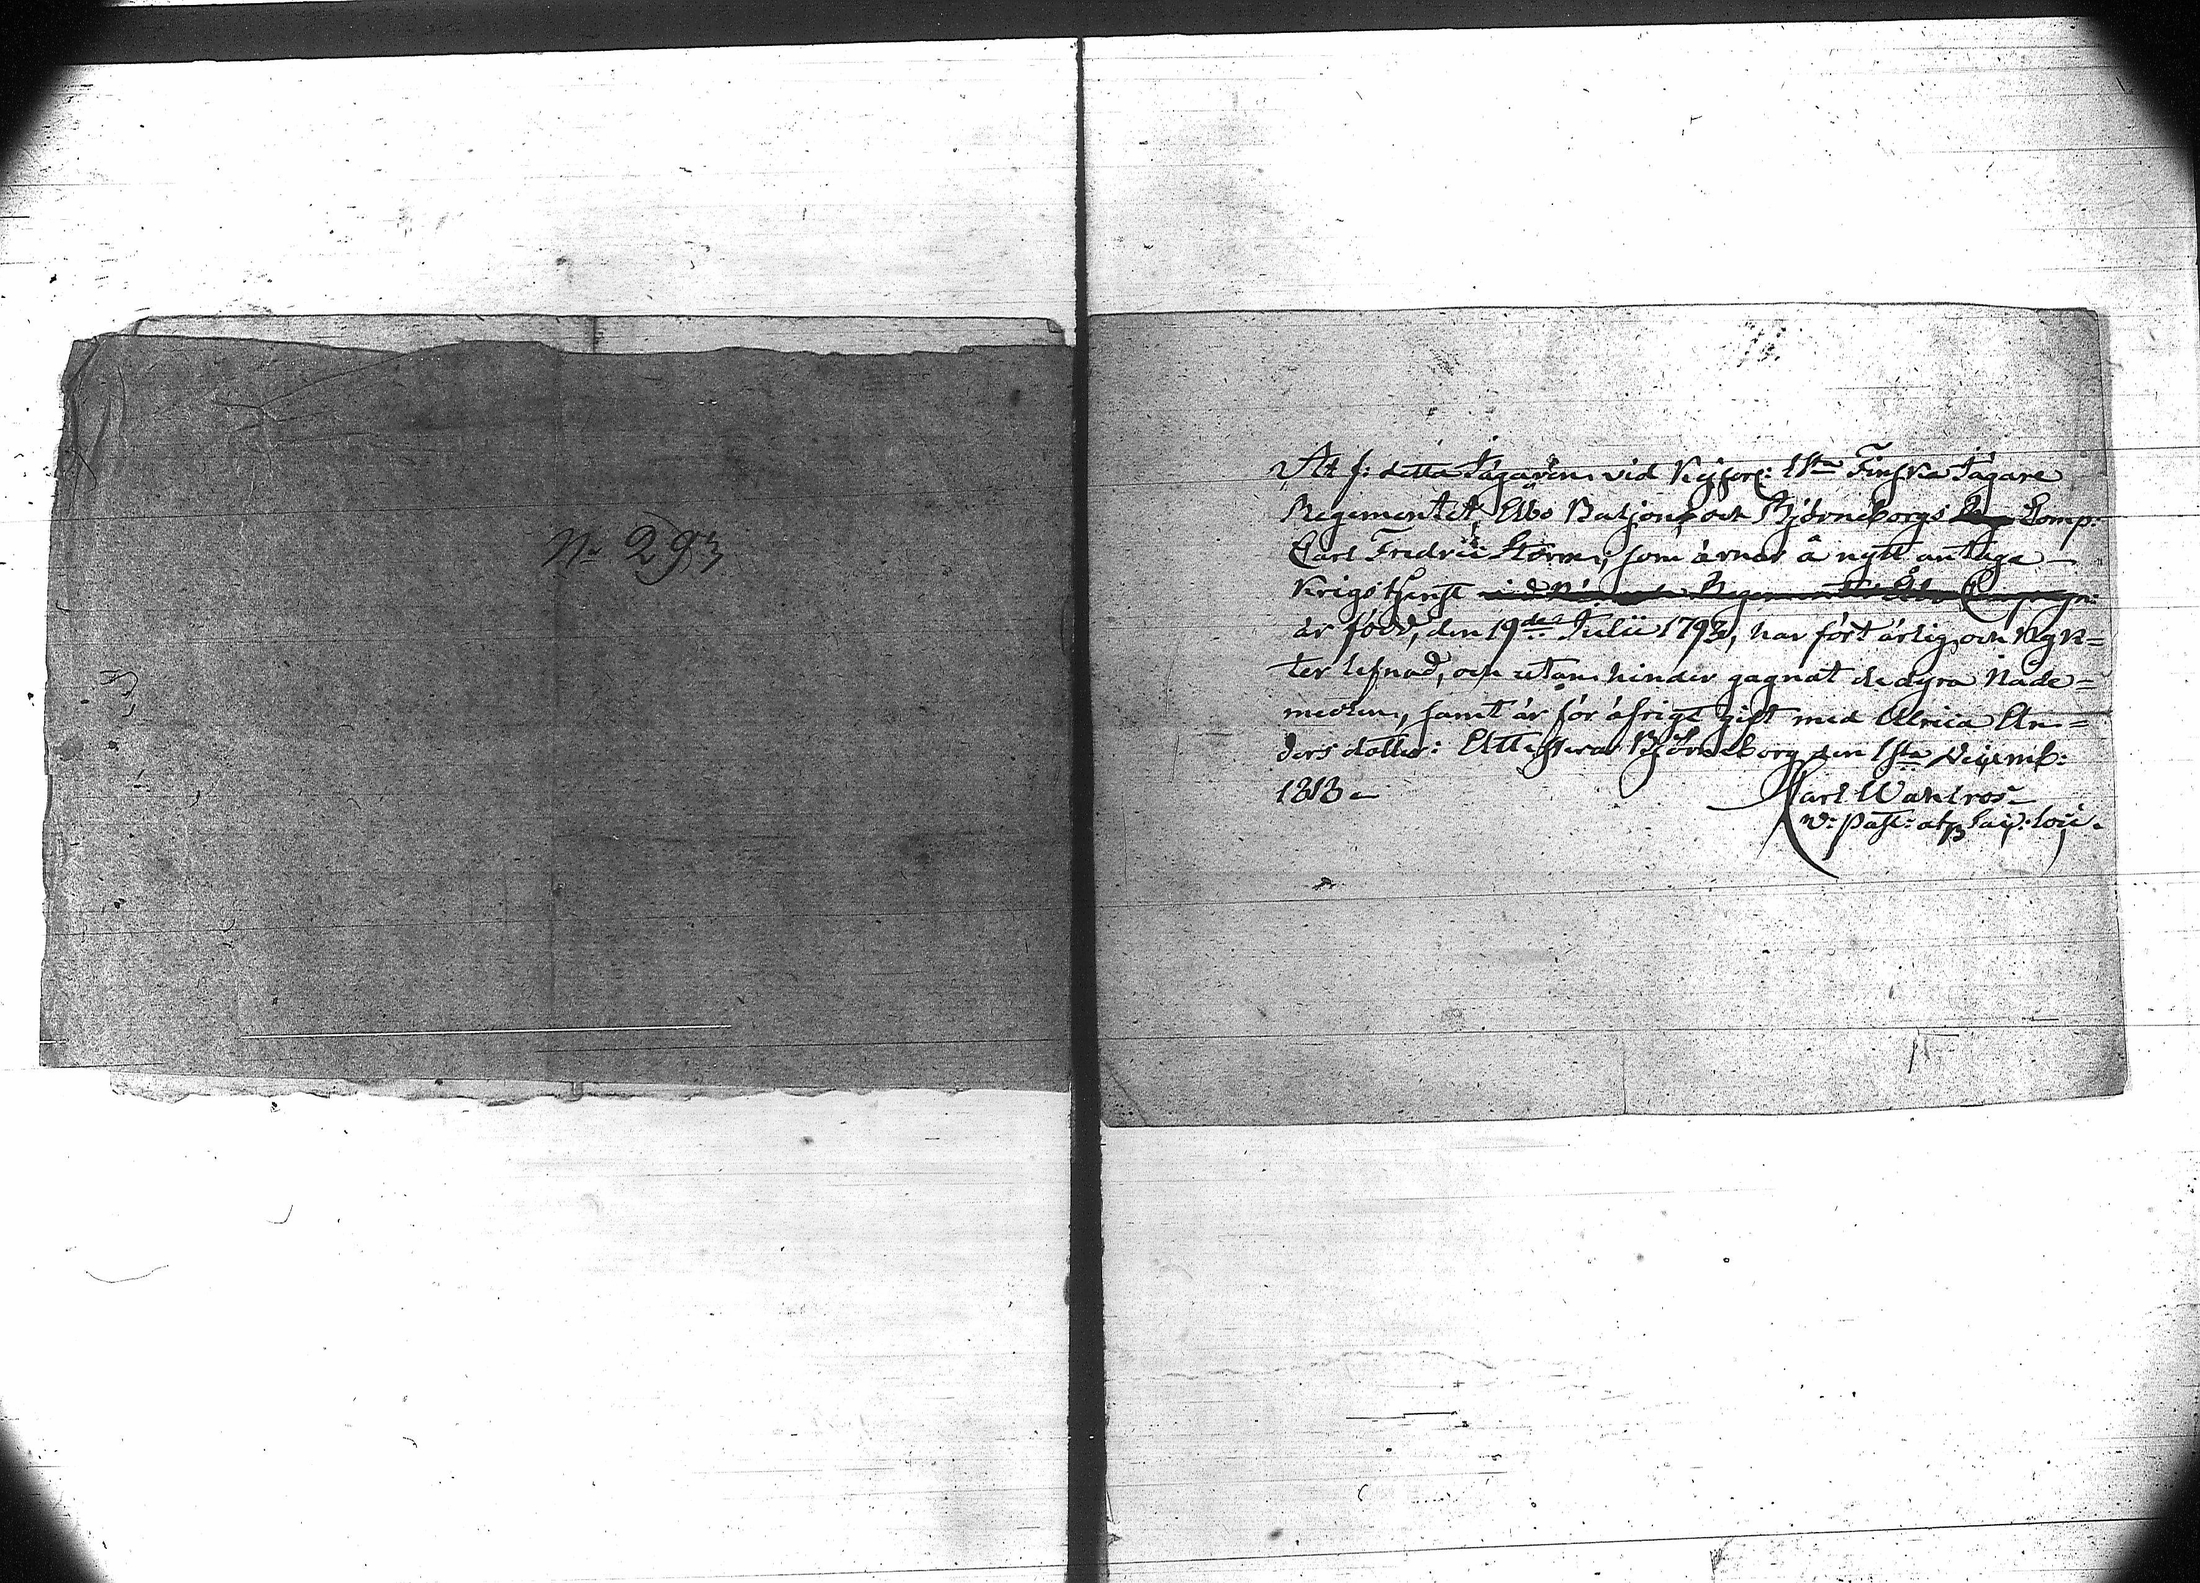 No 293
At f: detta Jägaren vid Kejserl: 1sta Finska Jägare
Regementet, Åbo Batjon, och Björneborgs Comp:
Carl Fredric Storm, som ärnar å nytt antaga
Krigstjenst
är född, den 19de Julii 1793, har fört ärlig och nyk=
ter lefnad, och utan hinder gagnat de dyra Nåde=
medlen, samt är för öfrigt gift med Ulrica An=
dersdotter: Attesterar Björneborg den 1sta Decemb:
1813
Carl Wahlroos
v: past: atq